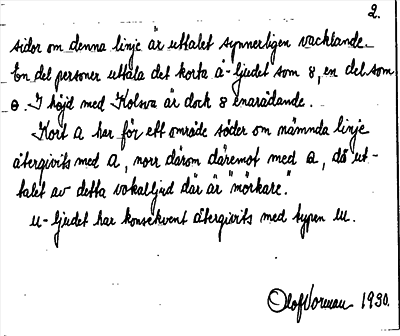 2.
sidor om denna linje är uttalet synnerligen vacklande.
En del personer uttala det korta å-ljudet som 8, en del som
o. I höjd med Kolsva är dock 8 enarådande.
Kort a har för ett område söder om nämnda linje
återgivits med a, norr därom däremot med a, då ut-
talet av detta vokalljud där är "mörkare".
u-ljudet har konsekvent återgivits med typen u.
Olof Norman 1930.